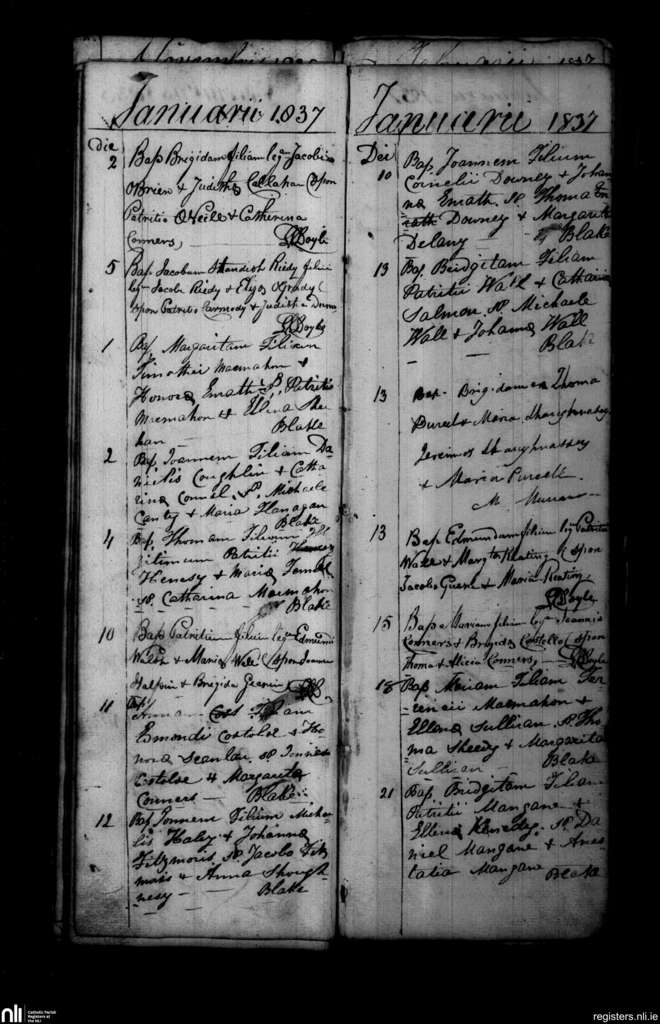 Januarii 1837
Die
2 Bap Brigidam filiam leg Jacobi
OBrien & Judith Callahan Spon
Patritio ONeile & Catherina
Conners, Doyle
5 Bap. Jacobum Standish Riedy filium
leg Jacobi Riedy & Eliza OGrady
Spon Patritio Carmody & Judith
Doyle
1 Bap. Margaritam Filiam
Timothei Macmahon &
Honora Emath. Sp. Patritio
Macmahon & Ellena She
han — Blake
2 Bap. Joannem Filium Da-
nielis Coughlin & Catha
rina Connel. Sp. Michaele
Canty & Maria Flanagan
Blake
4 Bap. Thomam Filium
filimum Patritii
Henesy & Maria
Sp. Catharina Macmahon
Blake
10 Bap Patritium filium leg Edmundi
Walsh & Maria Wall Spon Joanne
Halpin & Brigida
11 Bap
Filiam
Edmondi Costoloe & Ho
nora Scanlan. Sp.
Costoloe & Margarita
Conners — Blake
12 Bap. Joannem Filium Micha-
lis Haley & Johanna
Fitzmoris. Sp. Jacobo Fitz
moris & Anna Shough-
nesy — Blake
Januarii 1837
Dei
10 Bap. Joannem Filium
Cornelii Downey & Johan
na Emath. Sp. Thoma
Downey & Margarita
Delany — Blake
13 Bap. Bridgitam Filiam
Patritii Wall & Catharina
Salmon. Sp. Michaele
Wall & Johanna Wall
Blake
13 Bap. Brigidam Thoma
Purcel & Maria Shaughnassey
Shaughnassey
& Maria Purcell.
M
13 Bap Edmundum filium leg Patritii
Wall & Mary Keating Spon
Jacobo & Maria Keating
Doyle
15 Bap Mariam filiam leg Joannis
Conners & Brigida Costelloe Spon
Thoma & Alicia Conners, Doyle
18 Bap Mariam Filiam Ter-
rencii Macmahon &
Ellena Sullivan Sp. Tho
ma Sheedy & Margarita
Sullivan — Blake
21 Bap Bridgitam Filiam
Patritii Mangane &
Ellena Kenedy. Sp. Da
niel Mangane & Anas
tatia Mangane Blake
nli Catholic Parish
Registers at
the NLI
registers.nli.ie